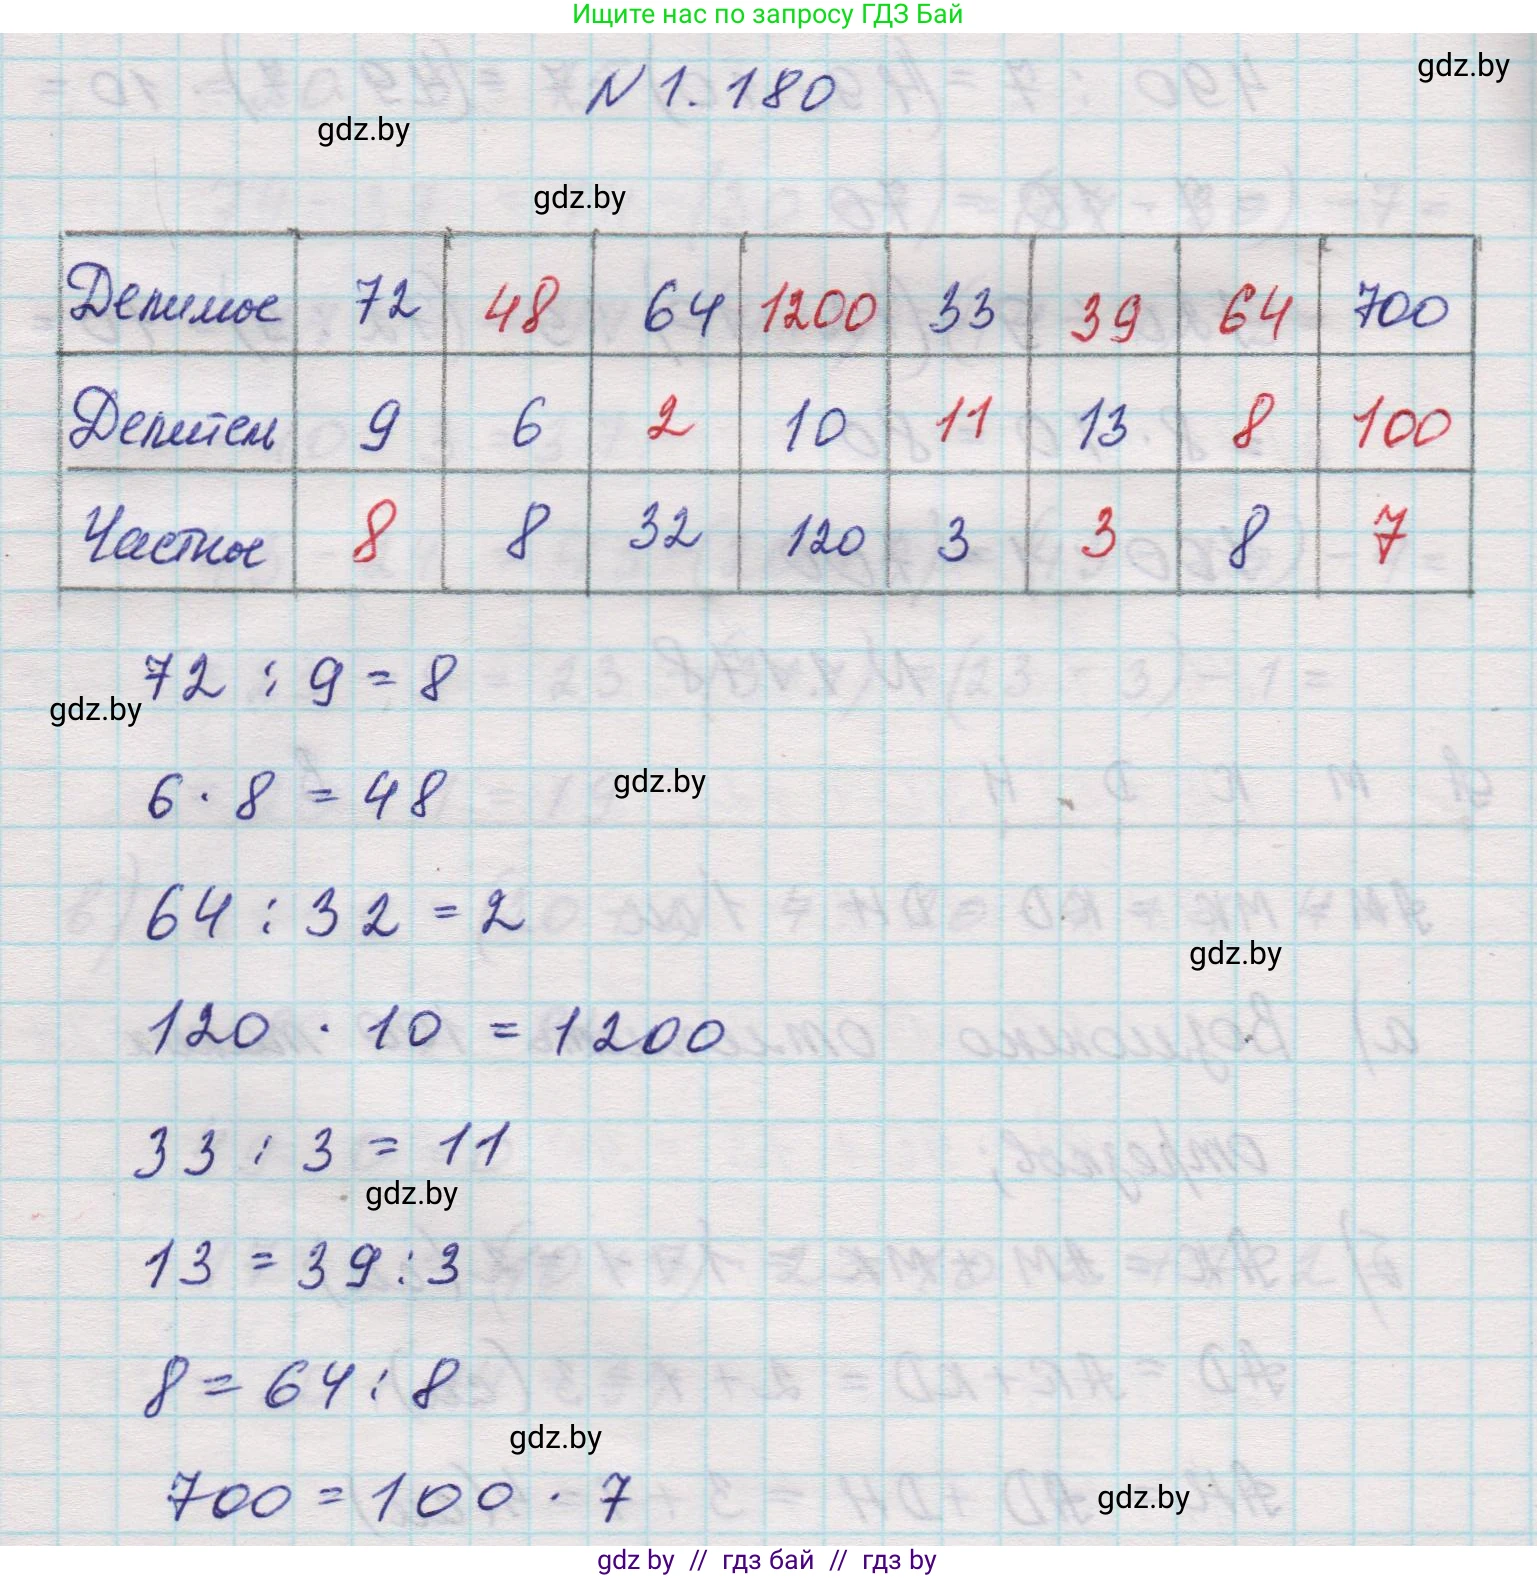 Ищите нас по запросу ГДЗ Бай
gdz.by
N 1.180
gdz.by
gdz.by
Делимое 72 48 64 1200 33 39 64 700
Делитель 9 6 2 10 11 13 8 100
Частное 8 8 32 120 3 3 8 7
72 : 9 = 8
gdz.by
gdz.by
6 · 8 = 48
64 : 32 = 2
gdz.by
120 · 10 = 1200
33 : 3 = 11
gdz.by
13 = 39 : 3
8 = 64 : 8
gdz.by
700 = 100 · 7
gdz.by
gdz by // гдз бай // гдз by